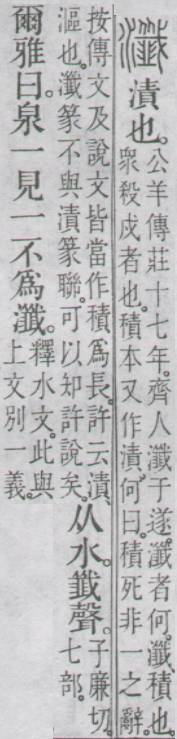 瀸漬也。
公羊傳莊十七年。齊人瀸于遂。瀸者何。瀸、積也。
衆殺戍者也。積本又作漬。何曰。積死非一之辭。
按傳文及說文皆當作積爲長。許云漬、
漚也。瀸篆不與漬篆聯。可以知許說矣。
从水。韱聲。
子廉切。
七部。
爾雅曰。泉一見一不爲瀸。
釋水文。此與
上文別一義。